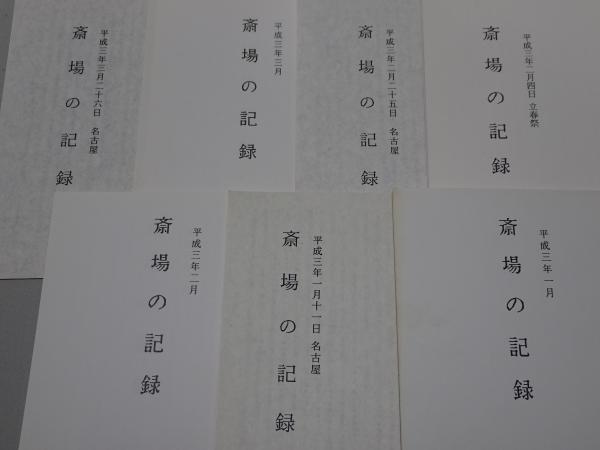 平成三年二月四日 立春祭
斎場の記録
平成三年二月二十五日 名古屋
斎場の記録
平成三年三月
斎場の記録
平成三年三月二十六日 名古屋
斎場の記録
平成三年一月
斎場の記録
平成三年一月十一日 名古屋
斎場の記録
平成三年二月
斎場の記録